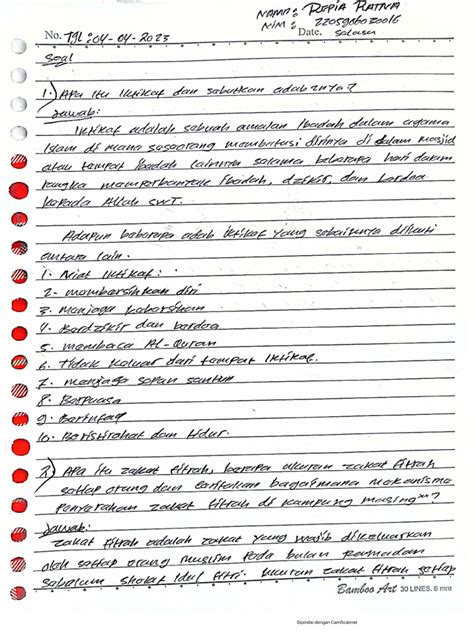 NAMA : REPIA RATNA
NIM : 2205906020016
No. TGL : 04-04-2023 Date. Selasa
Soal
1.) Apa itu Iktikaf dan sebutkan adab2nya?
Jawab:
Iktikaf adalah sebuah amalan Ibadah dalam agama
Islam di mana seseorang membatasi dirinya di dalam masjid
atau tempat Ibadah lainnya selama beberapa hari dalam
rangka memperbanyak Ibadah, dzikir, dan berdoa
kepada Allah SWT.
Adapun beberapa adab Iktikaf yang sebaiknya diikuti
antara lain.
1. Niat Iktikaf:
2. membersihkan diri
3. menjaga kebersihan
4. Berdzikir dan berdoa
5. membaca Al-Quran
6. Tidak keluar dari tempat Iktikaf.
7. menjaga sopan santun
8. Berpuasa
9. Berinfaq
10. Beristirahat dan tidur.
2.) Apa itu zakat fitrah, berapa ukuran zakat fitrah
setiap orang dan bagaimana mekanisme
penyerahan zakat fitrah di kampung masing2?
Jawab:
zakat fitrah adalah zakat yang wajib dikeluarkan
oleh setiap orang muslim pada bulan Ramadan
sebelum sholat Idul fitri. ukuran zakat fitrah setiap
Bamboo Art 30 LINES, 6 mm
Dipindai dengan CamScanner